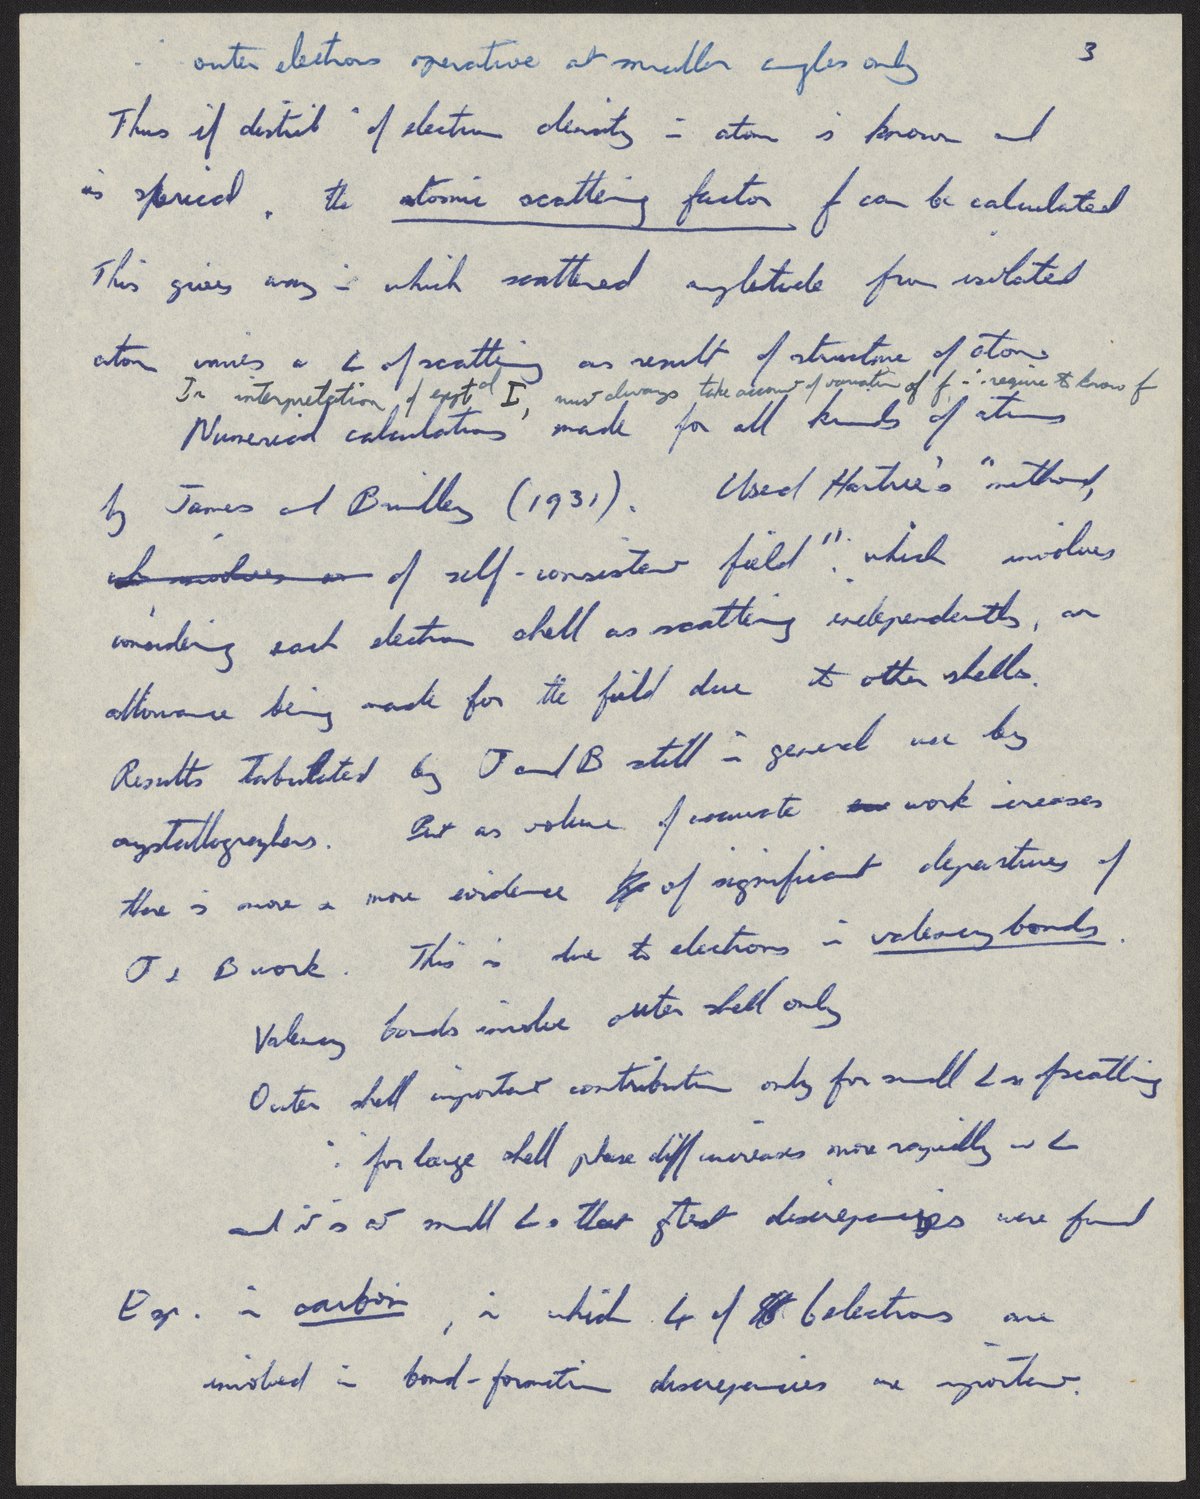 3
∴ outer electrons operative at smaller angles only
Thus if distribn of electron density in atom is known and
is sperical, the atomic scattering factor f can be calculated
This gives way in which scattered amplitude from isolated
atom varies c ∠ of scattering as result of structure of atom
In interpretation of exptal I, must always take account of variation of f, ∴ require to know f
Numerical calculations made for all kinds of atoms
by James and Brindley (1931). Used Hartree's "method,
wh involves an of self-consistent field", which involves
considering each electron shell as scattering independently, an
allowance being made for the field due to other shells.
Results tabulated by J and B still in general use by
crystallographers. But as volume of accurate work increases
there is more & more evidence of significant departures of
J & B work. This is due to electrons in valency bonds.
Valency bonds involve outer shell only
Outer shell important contribution only for small ∠s of scattering
∵ for large shell phase diff increases more rapidly with ∠
and it is at small ∠s that gtest discrepancies were found
Esp. in carbon, in which 4 of 6 electrons are
involved in bond-formation discrepancies are important.